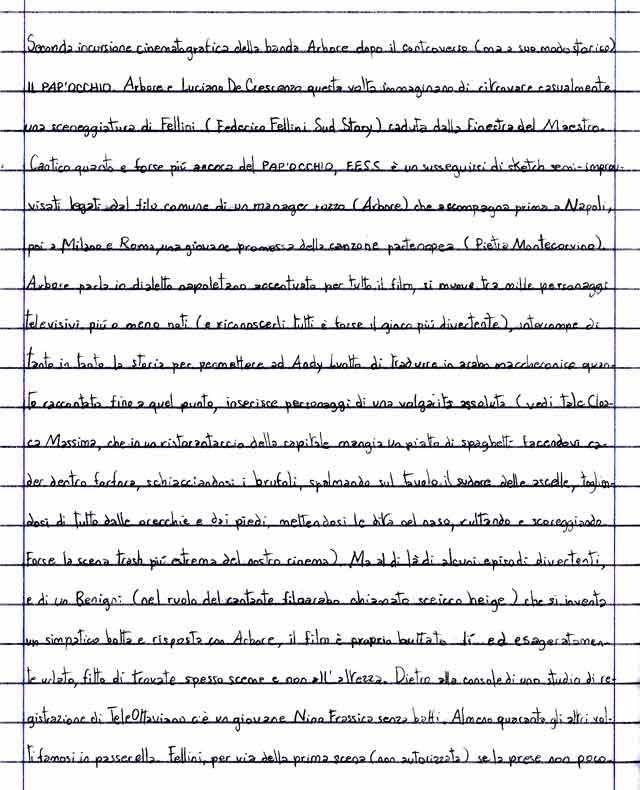 Seconda incursione cinematografica della banda Arbore dopo il controverso (ma a suo modo storico)
IL PAP'OCCHIO. Arbore e Luciano De Crescenzo questa volta immaginano di ritrovare casualmente
una sceneggiatura di Fellini (Federico Fellini Sud Story) caduta dalla finestra del Maestro.
Caotico quanto e forse più ancora del PAP'OCCHIO, F.F.S.S. è un susseguirsi di sketch semi-improv-
visati legati dal filo comune di un manager rozzo (Arbore) che accompagna prima a Napoli,
poi a Milano e Roma, una giovane promessa della canzone partenopea (Pietra Montecorvino).
Arbore parla in dialetto napoletano accentuato per tutto il film, si muove tra mille personaggi
televisivi più o meno noti (e riconoscerli tutti è forse il gioco più divertente), interrompe di
tanto in tanto la storia per permettere ad Andy Luotto di tradurre in arabo maccheronico quan-
to raccontato fino a quel punto, inserisce personaggi di una volgarità assoluta (vedi tale Cloa-
ca Massima, che in un ristorantaccio della capitale mangia un piatto di spaghetti facendovi ca-
der dentro forfora, schiacciandosi i brufoli, spalmando sul tavolo il sudore delle ascelle, toglien-
dosi di tutto dalle orecchie e dai piedi, mettendosi le dita nel naso, ruttando e scoreggiando.
Forse la scena trash più estrema del nostro cinema). Ma al di là di alcuni episodi divertenti,
e di un Benigni (nel ruolo del cantante filoarabo chiamato sceicco beige) che si inventa
un simpatico botta e risposta con Arbore, il film è proprio buttato lì ed esageratamen-
te urlato, fitto di trovate spesso sceme e non all'altezza. Dietro alla console di uno studio di re-
gistrazione di TeleOttaviano c'è un giovane Nino Frassica senza baffi. Almeno quaranta gli altri vol-
ti famosi in passerella. Fellini, per via della prima scena (non autorizzata) se la prese non poco.